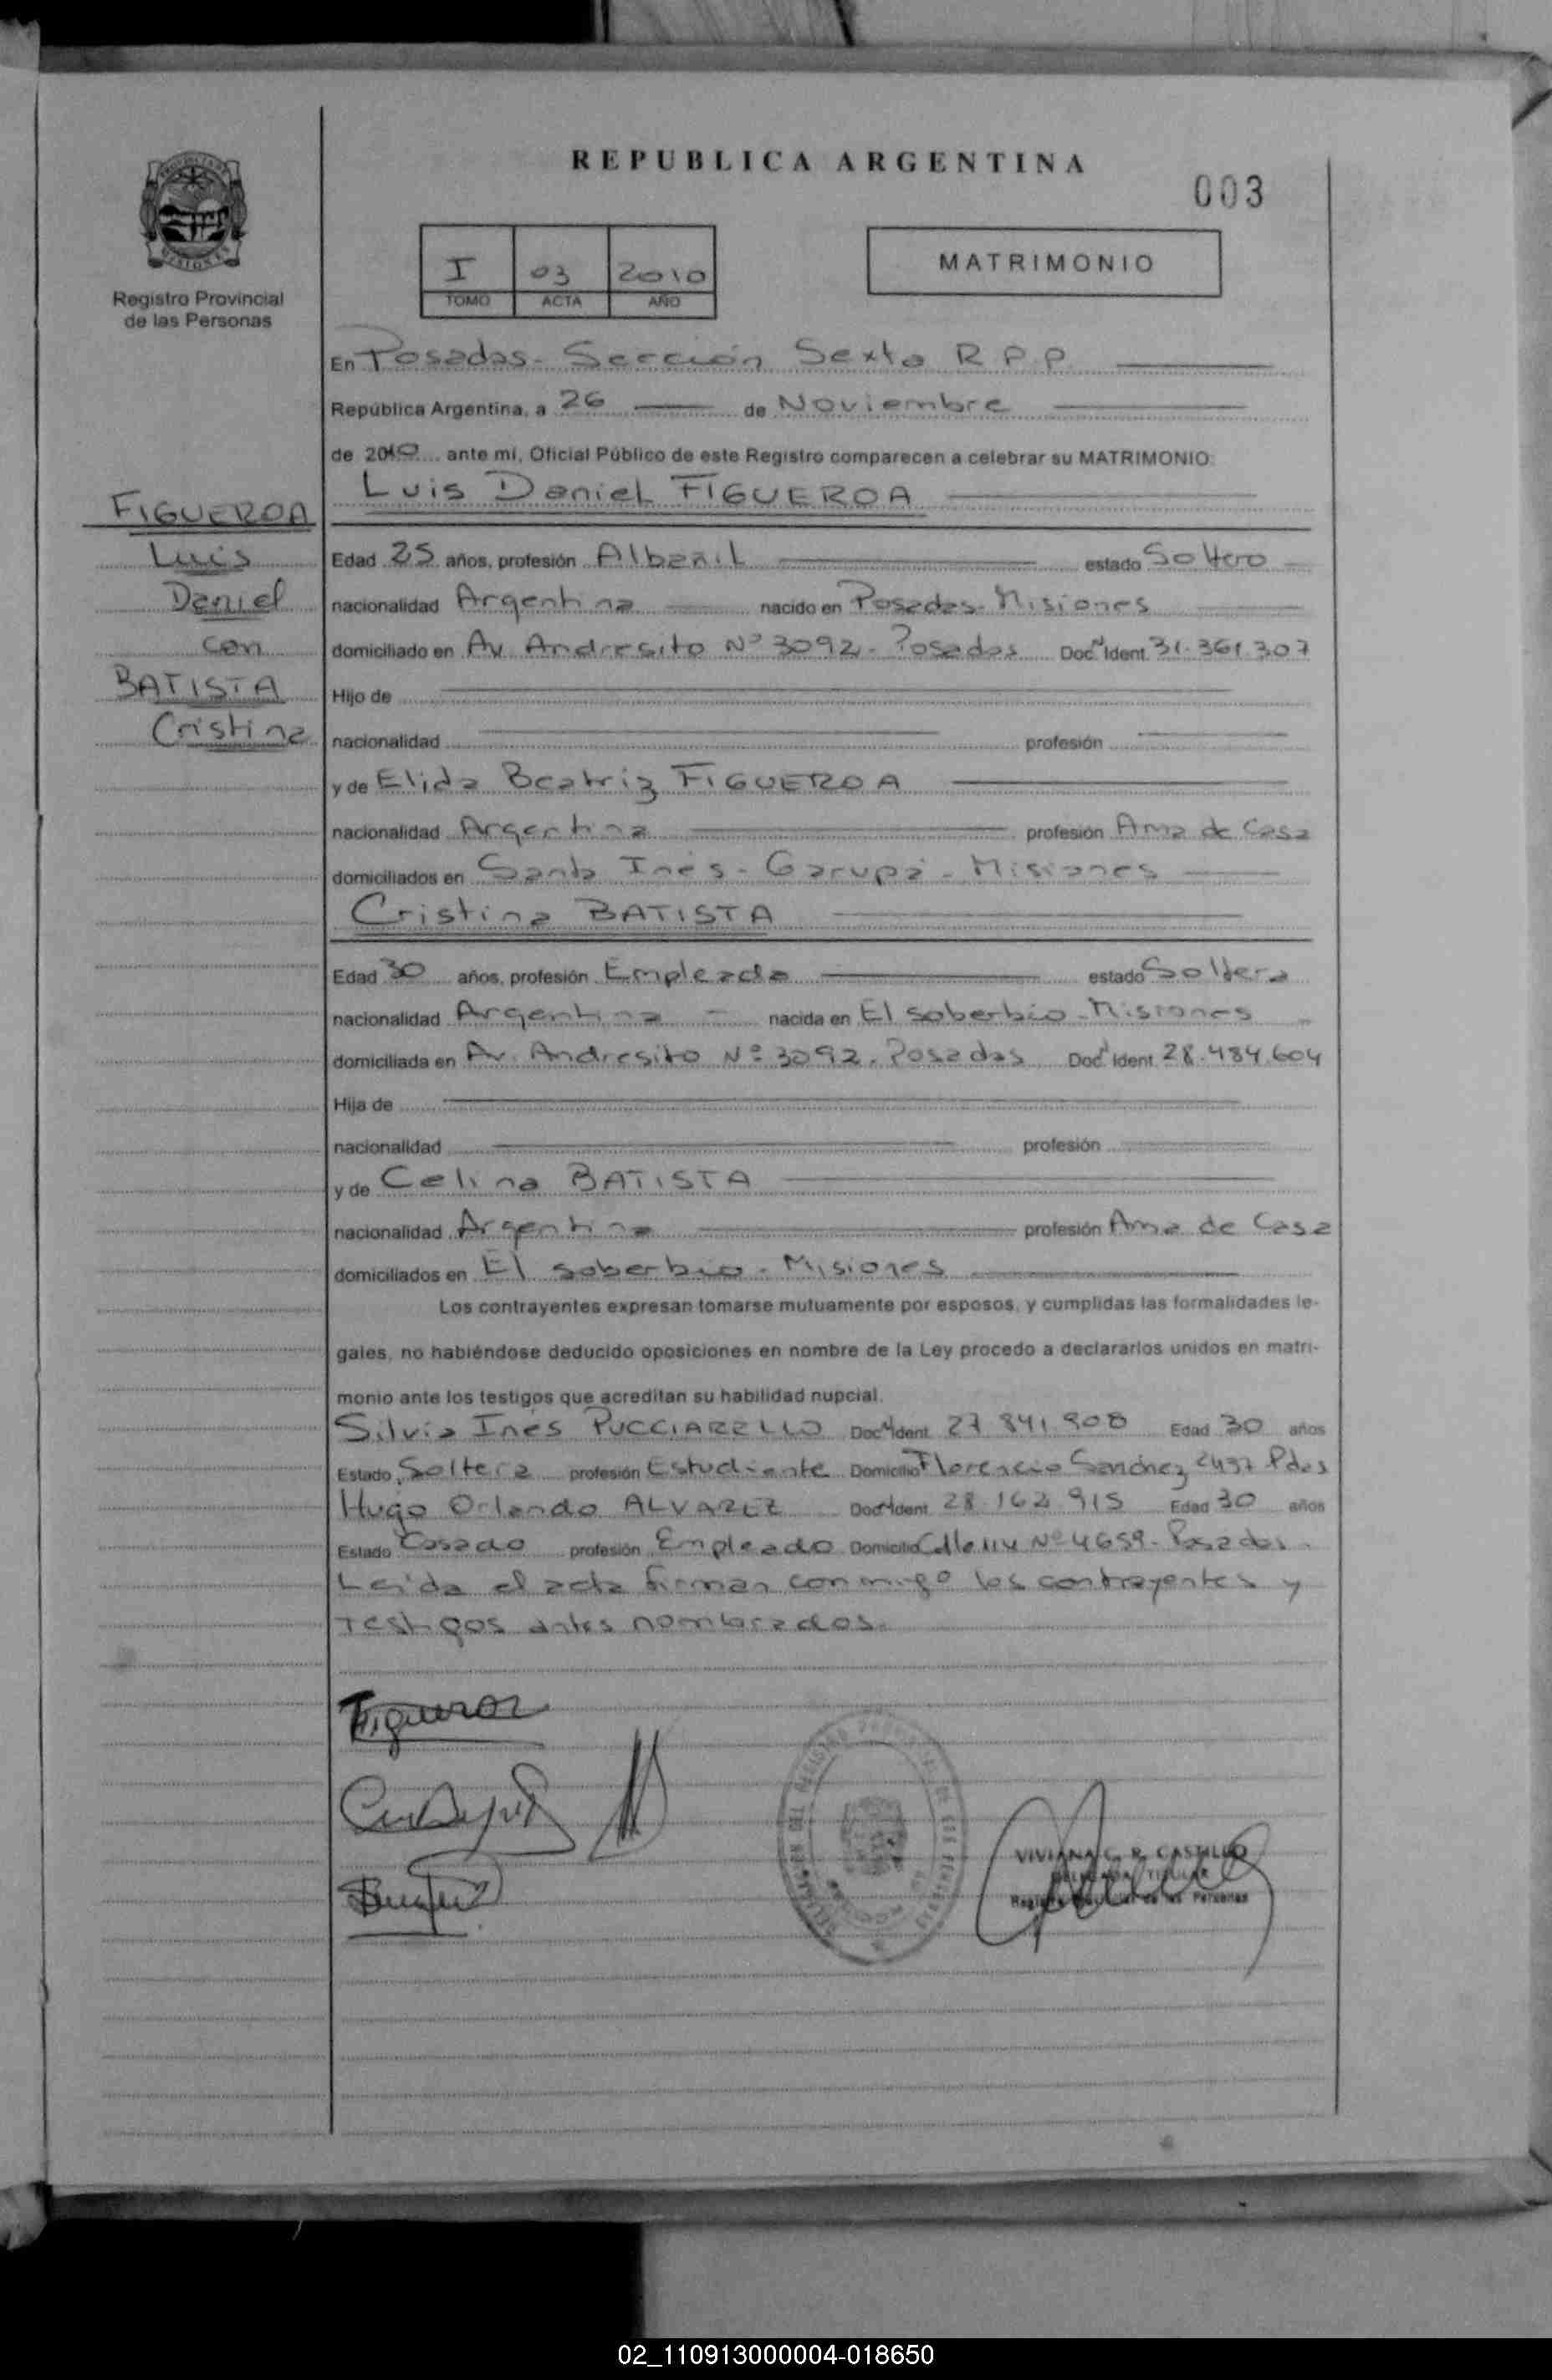 REPUBLICA ARGENTINA
003
I 03 2010
TOMO ACTA AÑO
MATRIMONIO
Registro Provincial
de las Personas
En Posadas - Sección Sexta R P P
República Argentina, a 26 de Noviembre
de 2010 ante mi, Oficial Público de este Registro comparecen a celebrar su MATRIMONIO:
Luis Daniel FIGUEROA
FIGUEROA
Luis
Daniel
con
BATISTA
Cristina
Edad 25 años, profesión Albañil estado Soltero
nacionalidad Argentina nacido en Posadas - Misiones
domiciliado en Av. Andresito Nº 3092 - Posadas Doc. Ident. 31.361.307
Hijo de
nacionalidad profesión
y de Elida Beatriz FIGUEROA
nacionalidad Argentina profesión Ama de Casa
domiciliados en Santa Inés - Garupá - Misiones
Cristina BATISTA
Edad 30 años, profesión Empleada estado Soltera
nacionalidad Argentina nacida en El Soberbio - Misiones
domiciliada en Av. Andresito Nº 3092 - Posadas Doc. Ident. 28.484.604
Hija de
nacionalidad profesión
y de Celina BATISTA
nacionalidad Argentina profesión Ama de Casa
domiciliados en El Soberbio - Misiones
Los contrayentes expresan tomarse mutuamente por esposos, y cumplidas las formalidades le-
gales, no habiéndose deducido oposiciones en nombre de la Ley procedo a declararlos unidos en matri-
monio ante los testigos que acreditan su habilidad nupcial.
Silvia Inés PUCCIARELLO Doc. Ident. 27.841.908 Edad 30 años
Estado Soltera profesión Estudiante Domicilio Florencio Sanchez 2437 Pdas
Hugo Orlando ALVAREZ Doc. Ident. 28.162.915 Edad 30 años
Estado Casado profesión Empleado Domicilio Calle 114 Nº 4659 - Posadas.
Leída el acta firman conmigo los contrayentes y
testigos antes nombrados.
Figueroa
VIVIANA C. R. CASTILLO
TITULAR
Registro Provincial de las Personas
02_110913000004-018650